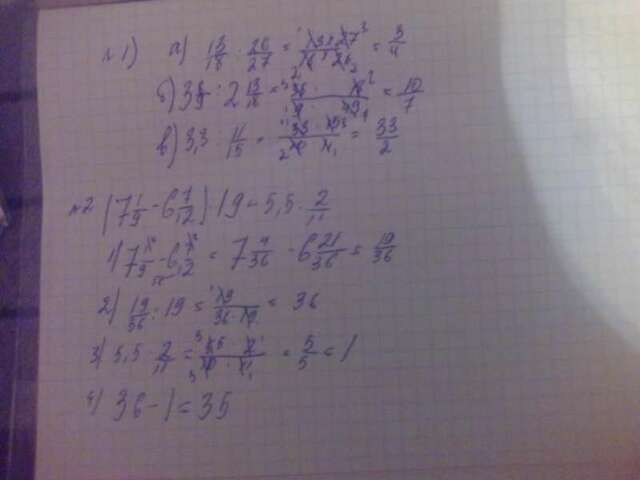 №1) а) 13/18 : 26/27 = 13 · 27/18 · 26 = 3/4
б) 3 8/9 : 2 13/18 = 35 · 18/9 · 49 = 10/7
в) 3,3 : 11/15 = 33 · 15/10 · 11 = 33/2
№2 (7 1/9 - 6 7/12) : 19 - 5,5 · 2/11
1) 7 1/9 - 6 7/12 = 7 4/36 - 6 21/36 = 19/36
2) 19/36 : 19 = 19/36 · 19 = 36
3) 5,5 · 2/11 = 55 · 2/10 · 11 = 5/5 = 1
4) 36 - 1 = 35